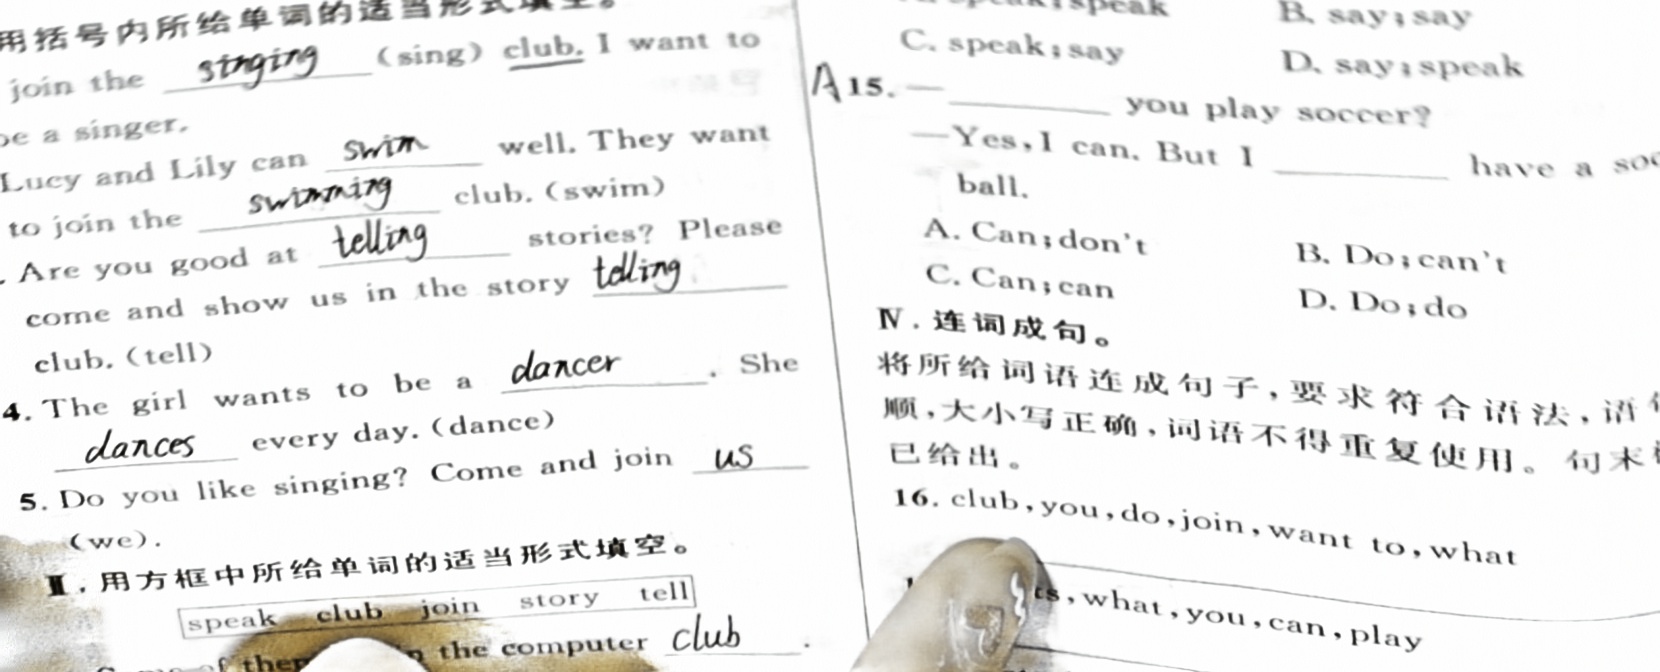 用括号内所给单词的适当形式填空。
join the singing (sing) club. I want to
be a singer.
Lucy and Lily can swim well. They want
to join the swimming club. (swim)
. Are you good at telling stories? Please
come and show us in the story telling
club. (tell)
4. The girl wants to be a dancer. She
dances every day. (dance)
5. Do you like singing? Come and join us
(we).
Ⅱ. 用方框中所给单词的适当形式填空。
speak club join story tell
the computer club.
speak
B. say; say
C. speak; say
D. say; speak
A 15. — ________ you play soccer?
—Yes, I can. But I ________ have a
ball.
A. Can; don't
B. Do; can't
C. Can; can
D. Do; do
Ⅳ. 连词成句。
将所给词语连成句子,要求符合语法,语
顺,大小写正确,词语不得重复使用。句末
已给出。
16. club, you, do, join, want to, what
, what, you, can, play